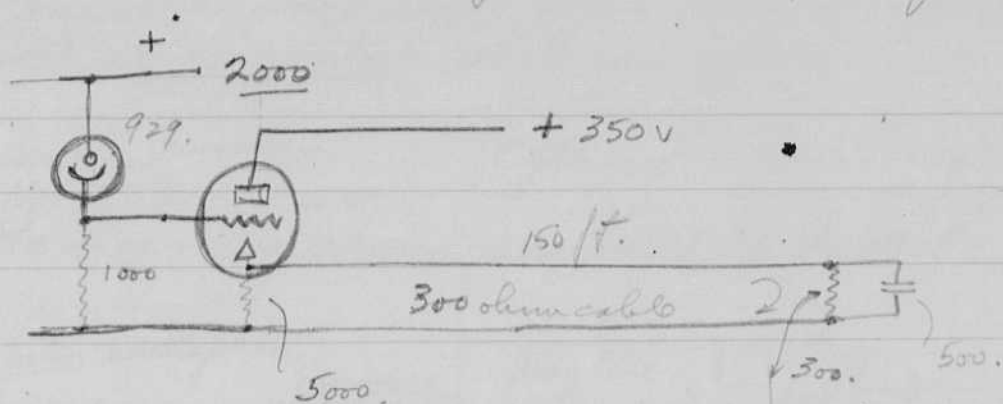 +
2000
929.
+ 350 V
150 ft.
1000
300 ohm cable
300.
500.
5000.